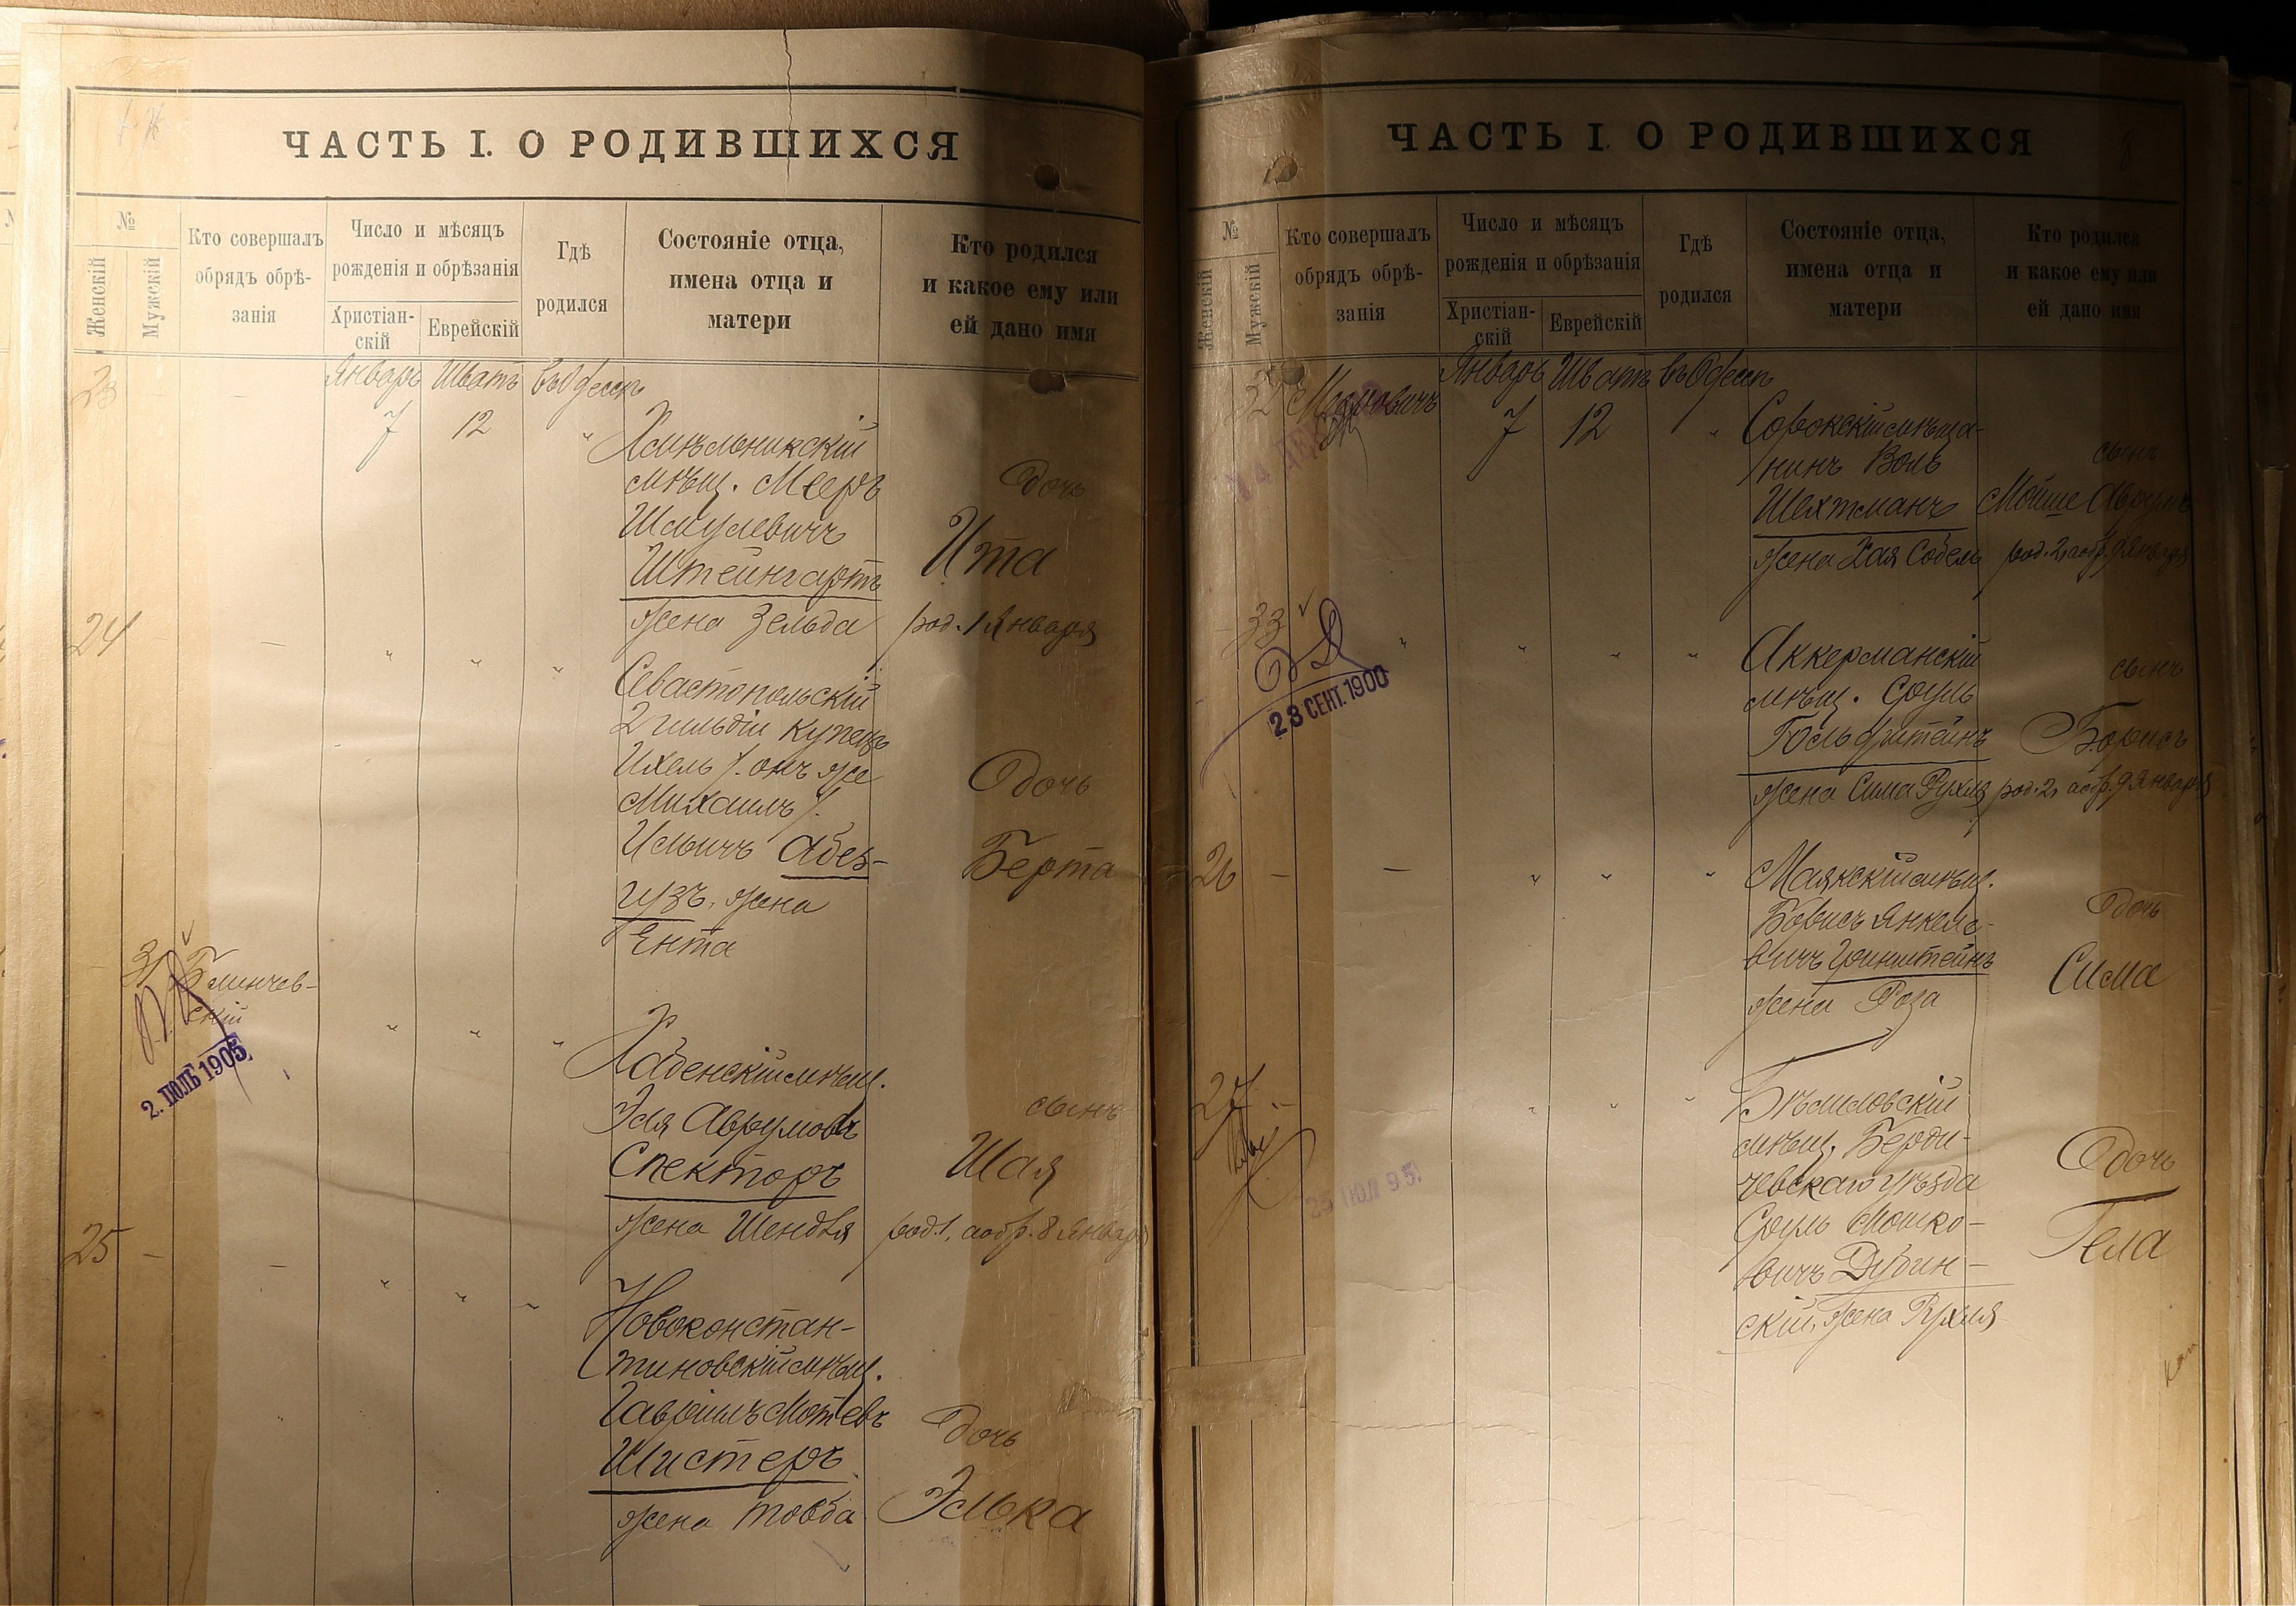 ЧАСТЬ I. О РОДИВШИХСЯ
№
Женскій
Мужскій
Кто совершалъ
обрядъ обрѣ-
занія
Число и мѣсяцъ
рожденія и обрѣзанія
Христіан-
скій
Еврейскій
Гдѣ
родился
Состояніе отца,
имена отца и
матери
Кто родился
и какое ему или
ей дано имя
23
—
Январь Шватъ въ Одессѣ
7 12 "
Хмѣльникскій
мѣщ. Мееръ
Шмулевичъ
Штейнгартъ
жена Зельда
дочь
Ита
род. 1 Января
24
— " " "
Севастопольскій
2 гильдіи купецъ
Ихель /. онъ же
Михаилъ /.
Ильичъ Абез-
гузъ, жена
Ента
дочь
Берта
31
Блинчев-
скій
2. ІЮЛЬ 1905
" " "
Хабенскій мѣщ.
Эля Аврумовъ
Спекторъ
жена Шендля
сынъ
Шая
род. 1, а обр. 8 Января
25 —
— " " "
Новоконстан-
тиновскій мѣщ.
Гавріилъ Мотевъ
Шистеръ
жена Товба
дочь
Элька
ЧАСТЬ I. О РОДИВШИХСЯ
8
№
Женскій
Мужскій
Кто совершалъ
обрядъ обрѣ-
занія
Число и мѣсяцъ
рожденія и обрѣзанія
Христіан-
скій
Еврейскій
Гдѣ
родился
Состояніе отца,
имена отца и
матери
Кто родился
и какое ему или
ей дано имя
32
Январь Шватъ въ Одессѣ
7 12 "
Сорокскій мѣща-
нинъ Воль
Шехтманъ
жена Хая Собель
сынъ
Мойше Аврумъ
род. 2, а обр. 9 Января
33
23 СЕНТ. 1900
" " " "
Аккерманскій
мѣщ. Сруль
Гольдштейнъ
жена Сима Рухля
сынъ
Борисъ
род. 2, а обр. 9 Января
26 —
— " " "
Маякскій мѣщ.
Борисъ Янкеле-
вичъ Гринштейнъ
жена Роза
дочь
Сима
27 —
29 ІЮЛ 95.
" " "
Бѣлиловскій
мѣщ. Берди-
чевскаго уѣзда
Сруль Мошко-
вичъ Дубин-
скій, жена Рухля
дочь
Гела